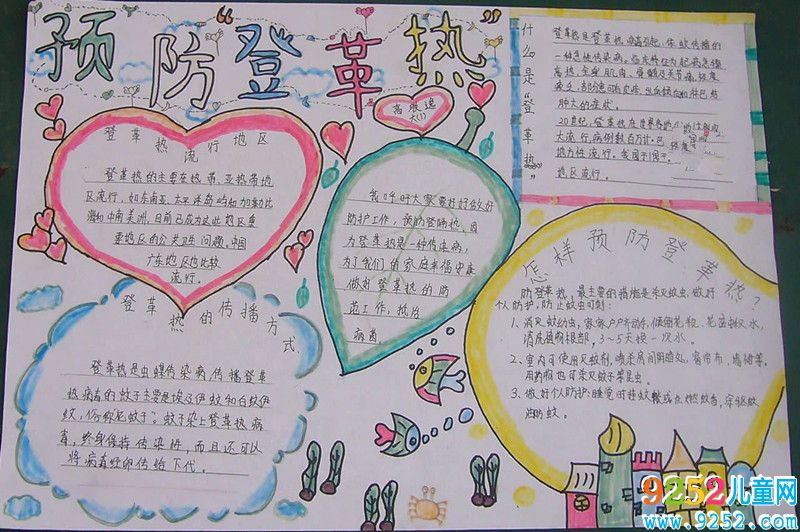 预防“登革热”
登革热流行地区
登革热的主要在热带、亚热带地
区流行，如东南亚、太平洋岛屿和加勒比
海和中南美洲，目前已成为这此热区重
要热区的公共卫生问题。中国
广东地区也比较
流行。
高
我呼吁大家要好好做好
防护工作，预防登革热，因
为登革热是一种传染病，
为了我们的家庭幸福安康
做好登革热的防
范工作，抵治
病菌
什么是“登革热”
登革热是登革热病毒引起、依蚊传播的
一种急性传染病。临床特征为起病急骤
高热，全身肌肉、骨髓及关节痛，极度
疲乏，部分患可有皮疹、出血倾向和淋巴结
肿大的症状。
20世纪，登革热在世界各地
大流行，病例数百万计。
地方性流行。我国于
热区流行。
怎样预防登革热？
防登革热，最主要的措施是杀灭蚊虫，做好
个人防护，防止蚊虫叮刺：
1、消灭蚊幼虫，家家户户齐动手，倾倒花积、花盆积水，
清洗植物根部，3～5天换一次水。
2、室内可使用灭蚊剂，喷杀房间阴暗处、窗帘布、墙裙等。
用药物也可杀灭蚊子等昆虫。
3、做好个人防护：睡觉时挂蚊帐或点燃蚊香，穿驱蚊
油防蚊。
登革热的传播方式
登革热是虫媒传染病，传播登革
热病毒的蚊子主要是埃及伊蚊和白纹伊
蚊，俗称花蚊子；蚊子染上登革热病
毒，终身保持传染性，而且还可以
将病毒经卵传给下代。
9252儿童网
www.9252.com